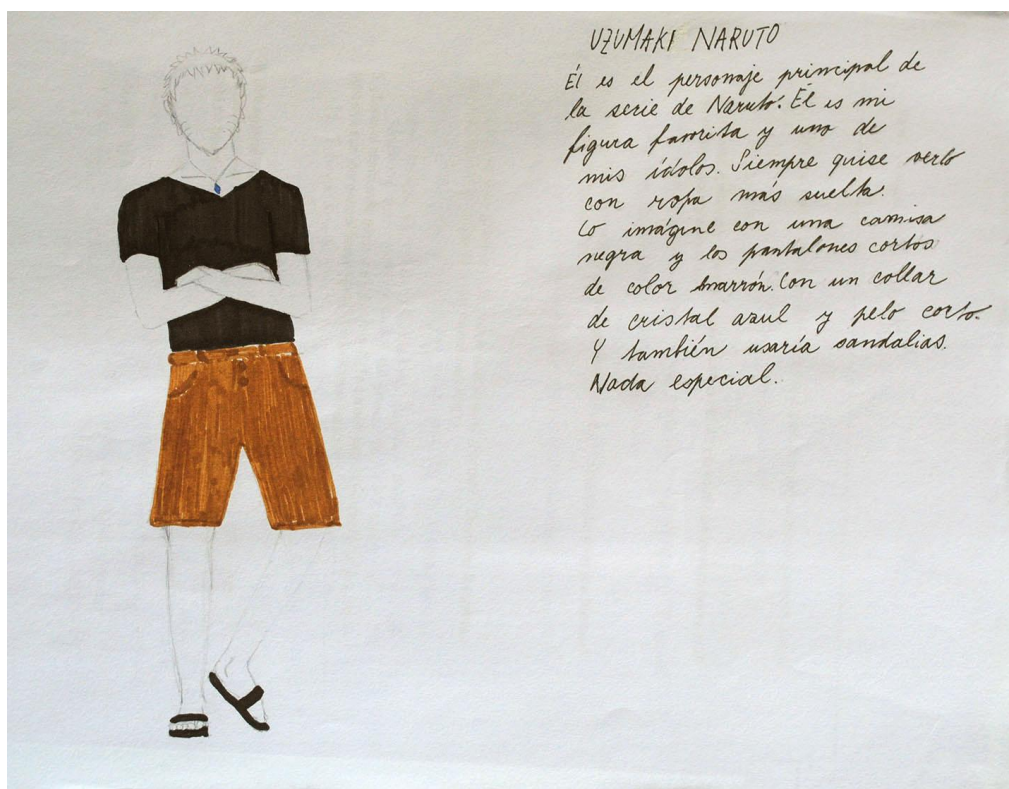 UZUMAKI NARUTO
Él es el personaje principal de
la serie de Naruto. Él es mi
figura favorita y uno de
mis ídolos. Siempre quise verlo
con ropa más suelta.
Lo imágine con una camisa
negra y los pantalones cortos
de color marrón. Con un collar
de cristal azul y pelo corto.
Y también usaría sandalias.
Nada especial.